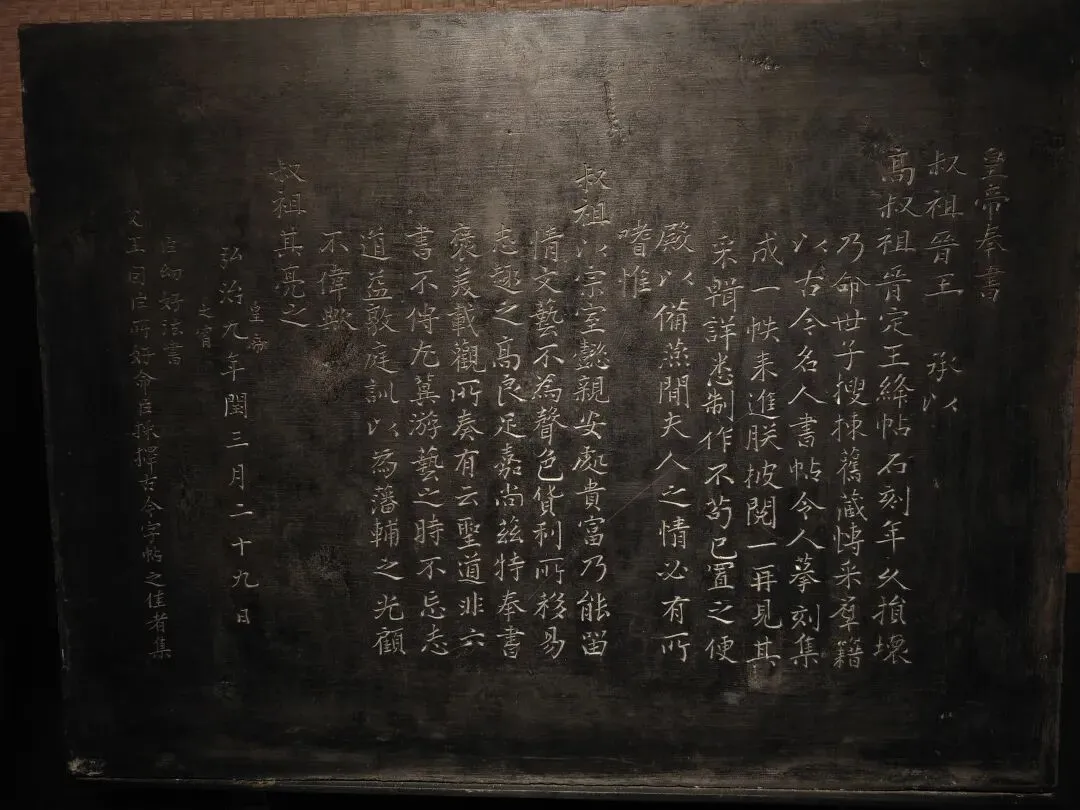 皇帝奉書
叔祖晉王 承以
高叔祖晉定王絳帖石刻年久損壞
乃命世子搜揀舊藏博采羣籍
以古今名人書帖令人摹刻集
成一帙来進朕披閱一再見其
采輯詳悉制作不苟已置之便
殿以備燕閒夫人之情必有所
嗜惟
叔祖以宗室懿親安處貴富乃能留
情文藝不為聲色貨利所移易
志趣之高良足嘉尚茲特奉書
褒美載觀所奏有云聖道非六
書不傳尤冀游藝之時不忘志
道益敦庭訓以為藩輔之光顧
不偉歟
叔祖其亮之
皇帝
弘治九年閏三月二十九日
之寳
臣幼好法書
父王因臣所好命臣採擇古今字帖之佳者集